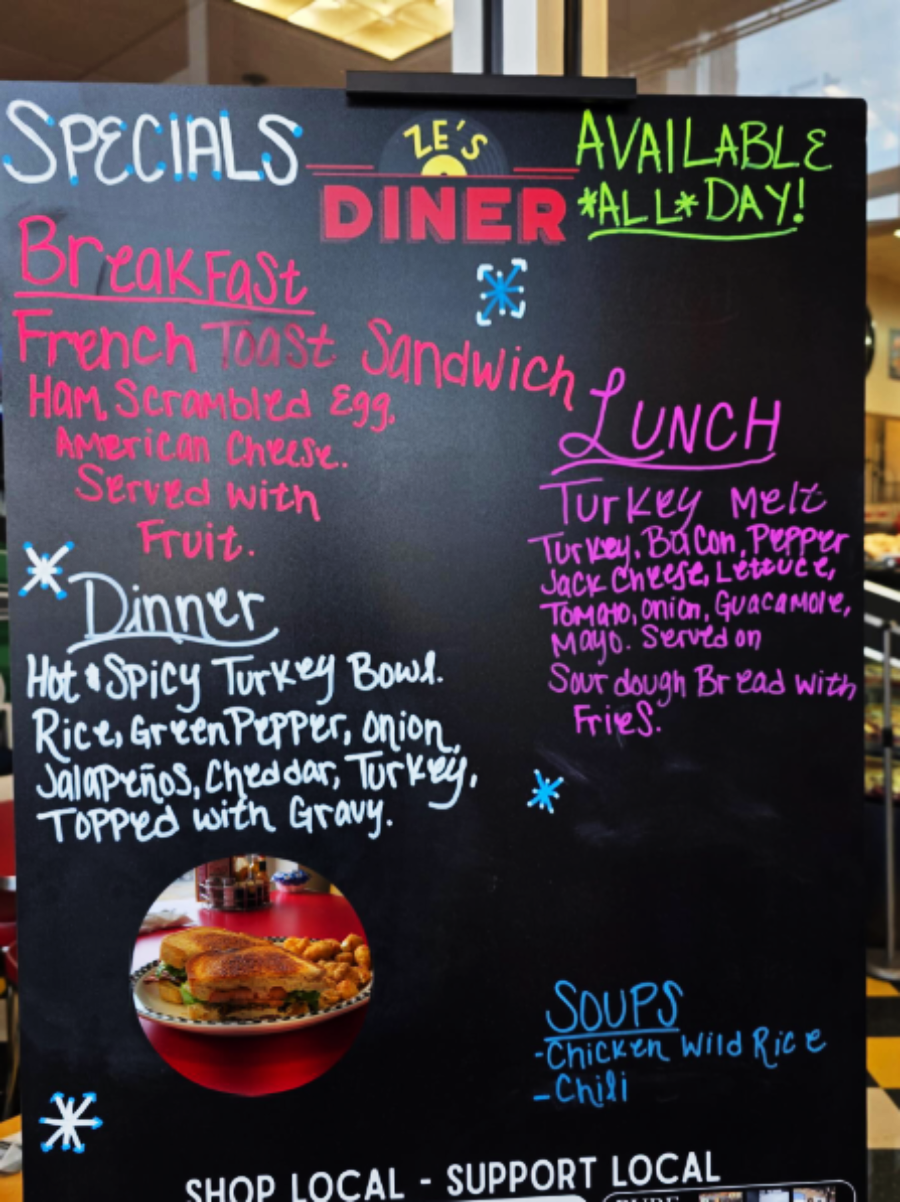 SPECIALS
ZE'S
DINER
AVAILABLE
*ALL* DAY!
Breakfast
French Toast Sandwich
Ham, Scrambled Egg,
American Cheese.
Served with
Fruit.
LUNCH
Turkey Melt
Turkey, Bacon, Pepper
Jack Cheese, Lettuce,
Tomato, Onion, Guacamole,
Mayo. Served on
Sourdough Bread with
Fries.
Dinner
Hot & Spicy Turkey Bowl.
Rice, Green Pepper, Onion,
Jalapeños, Cheddar, Turkey,
Topped with Gravy.
SOUPS
-Chicken Wild Rice
-Chili
SHOP LOCAL - SUPPORT LOCAL